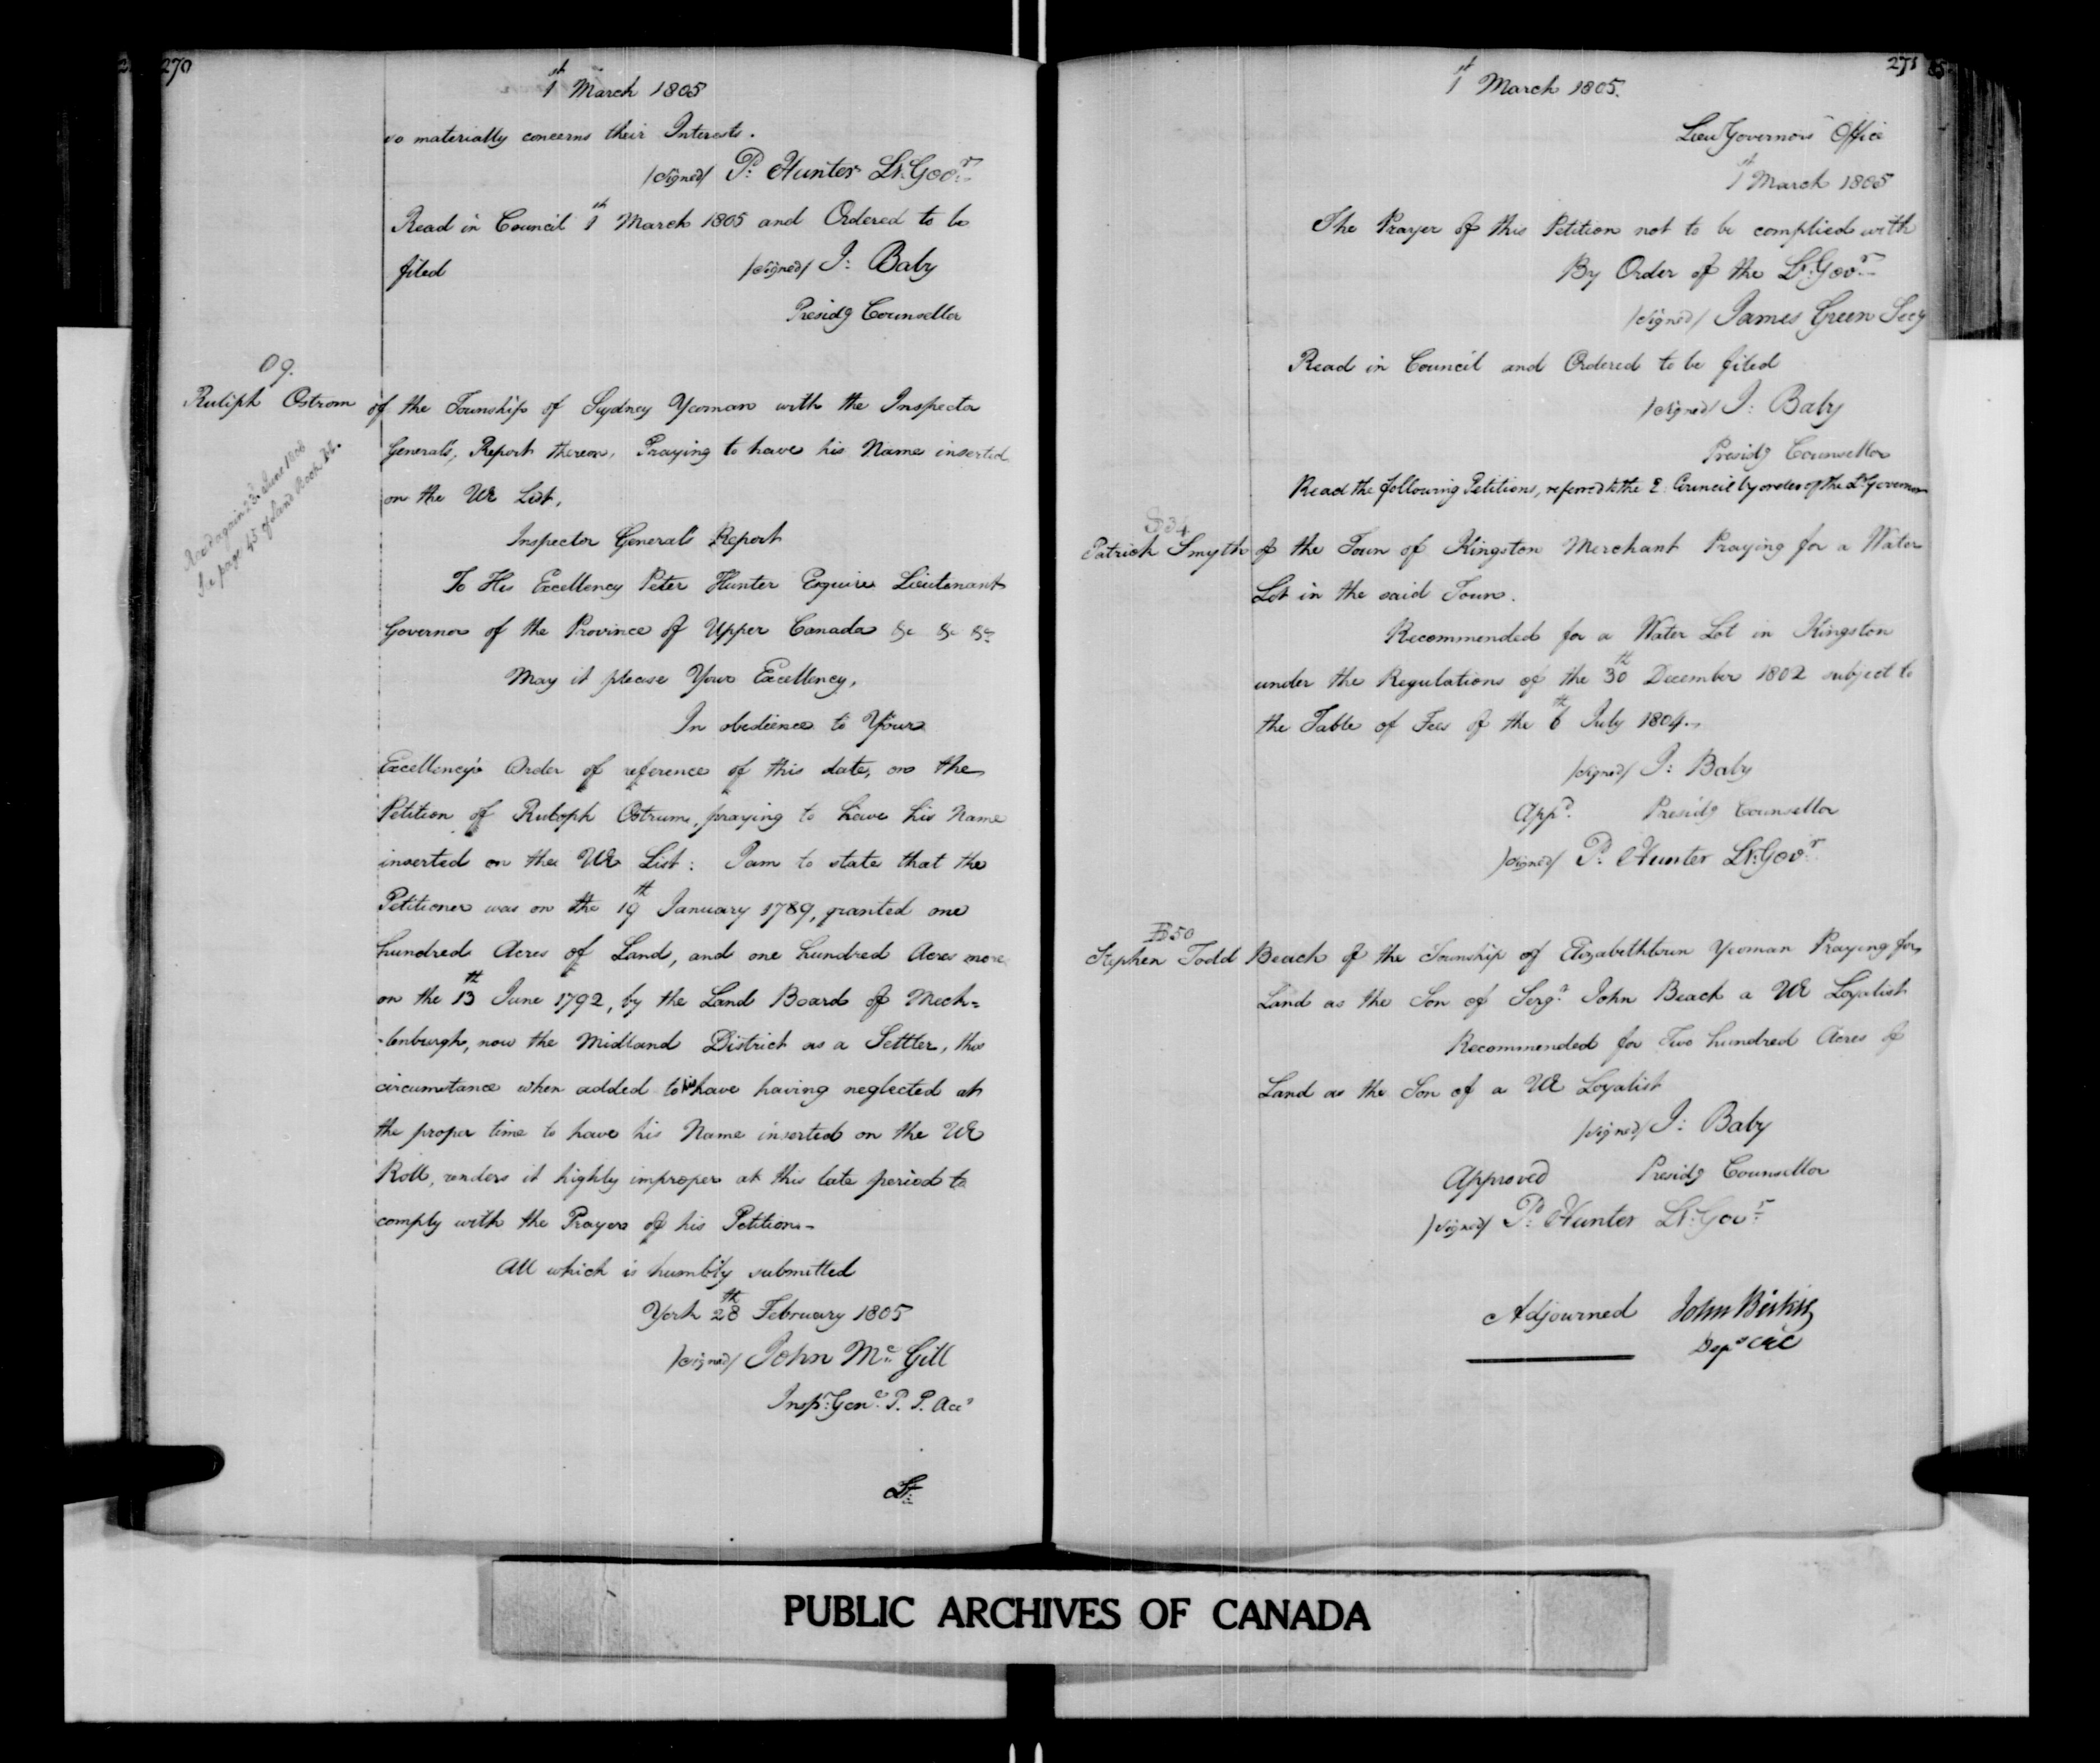 270
1st March 1805
so materially concerns their Interests.
/signed/ P: Hunter Lt. Govr.
Read in Council 1st March 1805 and Ordered to be
filed /signed/ J: Baby
Presidg Counsellor
O 9.
Ruliph Ostrom of the Township of Sydney Yeoman with the Inspector
Generals, Report thereon, Praying to have his Name inserted
on the UE List,
Read again 23d. June 1806
See page 45 of Land Book
Inspector General's Report
To His Excellency Peter Hunter Esquire Lieutenant
Governor of the Province of Upper Canada &c &c &c
May it please Your Excellency,
In obedience to Your
Excellency's Order of reference of this date, on the
Petition of Rutoph Ostrum, praying to have his Name
inserted on the UE List: I am to state that the
Petitioner was on the 19th January 1789, granted one
hundred Acres of Land, and one hundred Acres more
on the 13th June 1792, by the Land Board of Meck=
-lenburgh, now the Midland District as a Settler, this
circumstance when added to his have having neglected at
the proper time to have his Name inserted on the UE
Roll, renders it highly improper at this late period to
comply with the Prayer of his Petition-
All which is humbly submitted
York 28th February 1805
/signed/ John Mc. Gill
Inspr. Genl. P. P. Accs
Lt.
271
1st March 1805.
Lieu Governors Office
1st March 1805
The Prayer of this Petition not to be complied with
By Order of the Lt. Govr.
/signed/ James Green Secy
Read in Council and Ordered to be filed
/signed/ J: Baby
Presidg Counsellor
Read the following Petitions, referred to the E. Council by order of the Lt Governor
S 34
Patrick Smyth of the Town of Kingston Merchant Praying for a Water
Lot in the said Town.
Recommended for a Water Lot in Kingston
under the Regulations of the 30th December 1802 subject to
the Table of Fees of the 6th July 1804.
/signed/ J: Baby
Appd. Presidg Counsellor
/signed/ P: Hunter Lt. Govr.
B 50
Stephen Todd Beach of the Township of Elizabethtown Yeoman Praying for
Land as the Son of Sergt. John Beach a UE Loyalist
Recommended for Two hundred Acres of
Land as the Son of a UE Loyalist
/signed/ J: Baby
Approved Presidg Counsellor
/signed/ P: Hunter Lt. Govr.
Adjourned John Beikie
Depy CEC
PUBLIC ARCHIVES OF CANADA